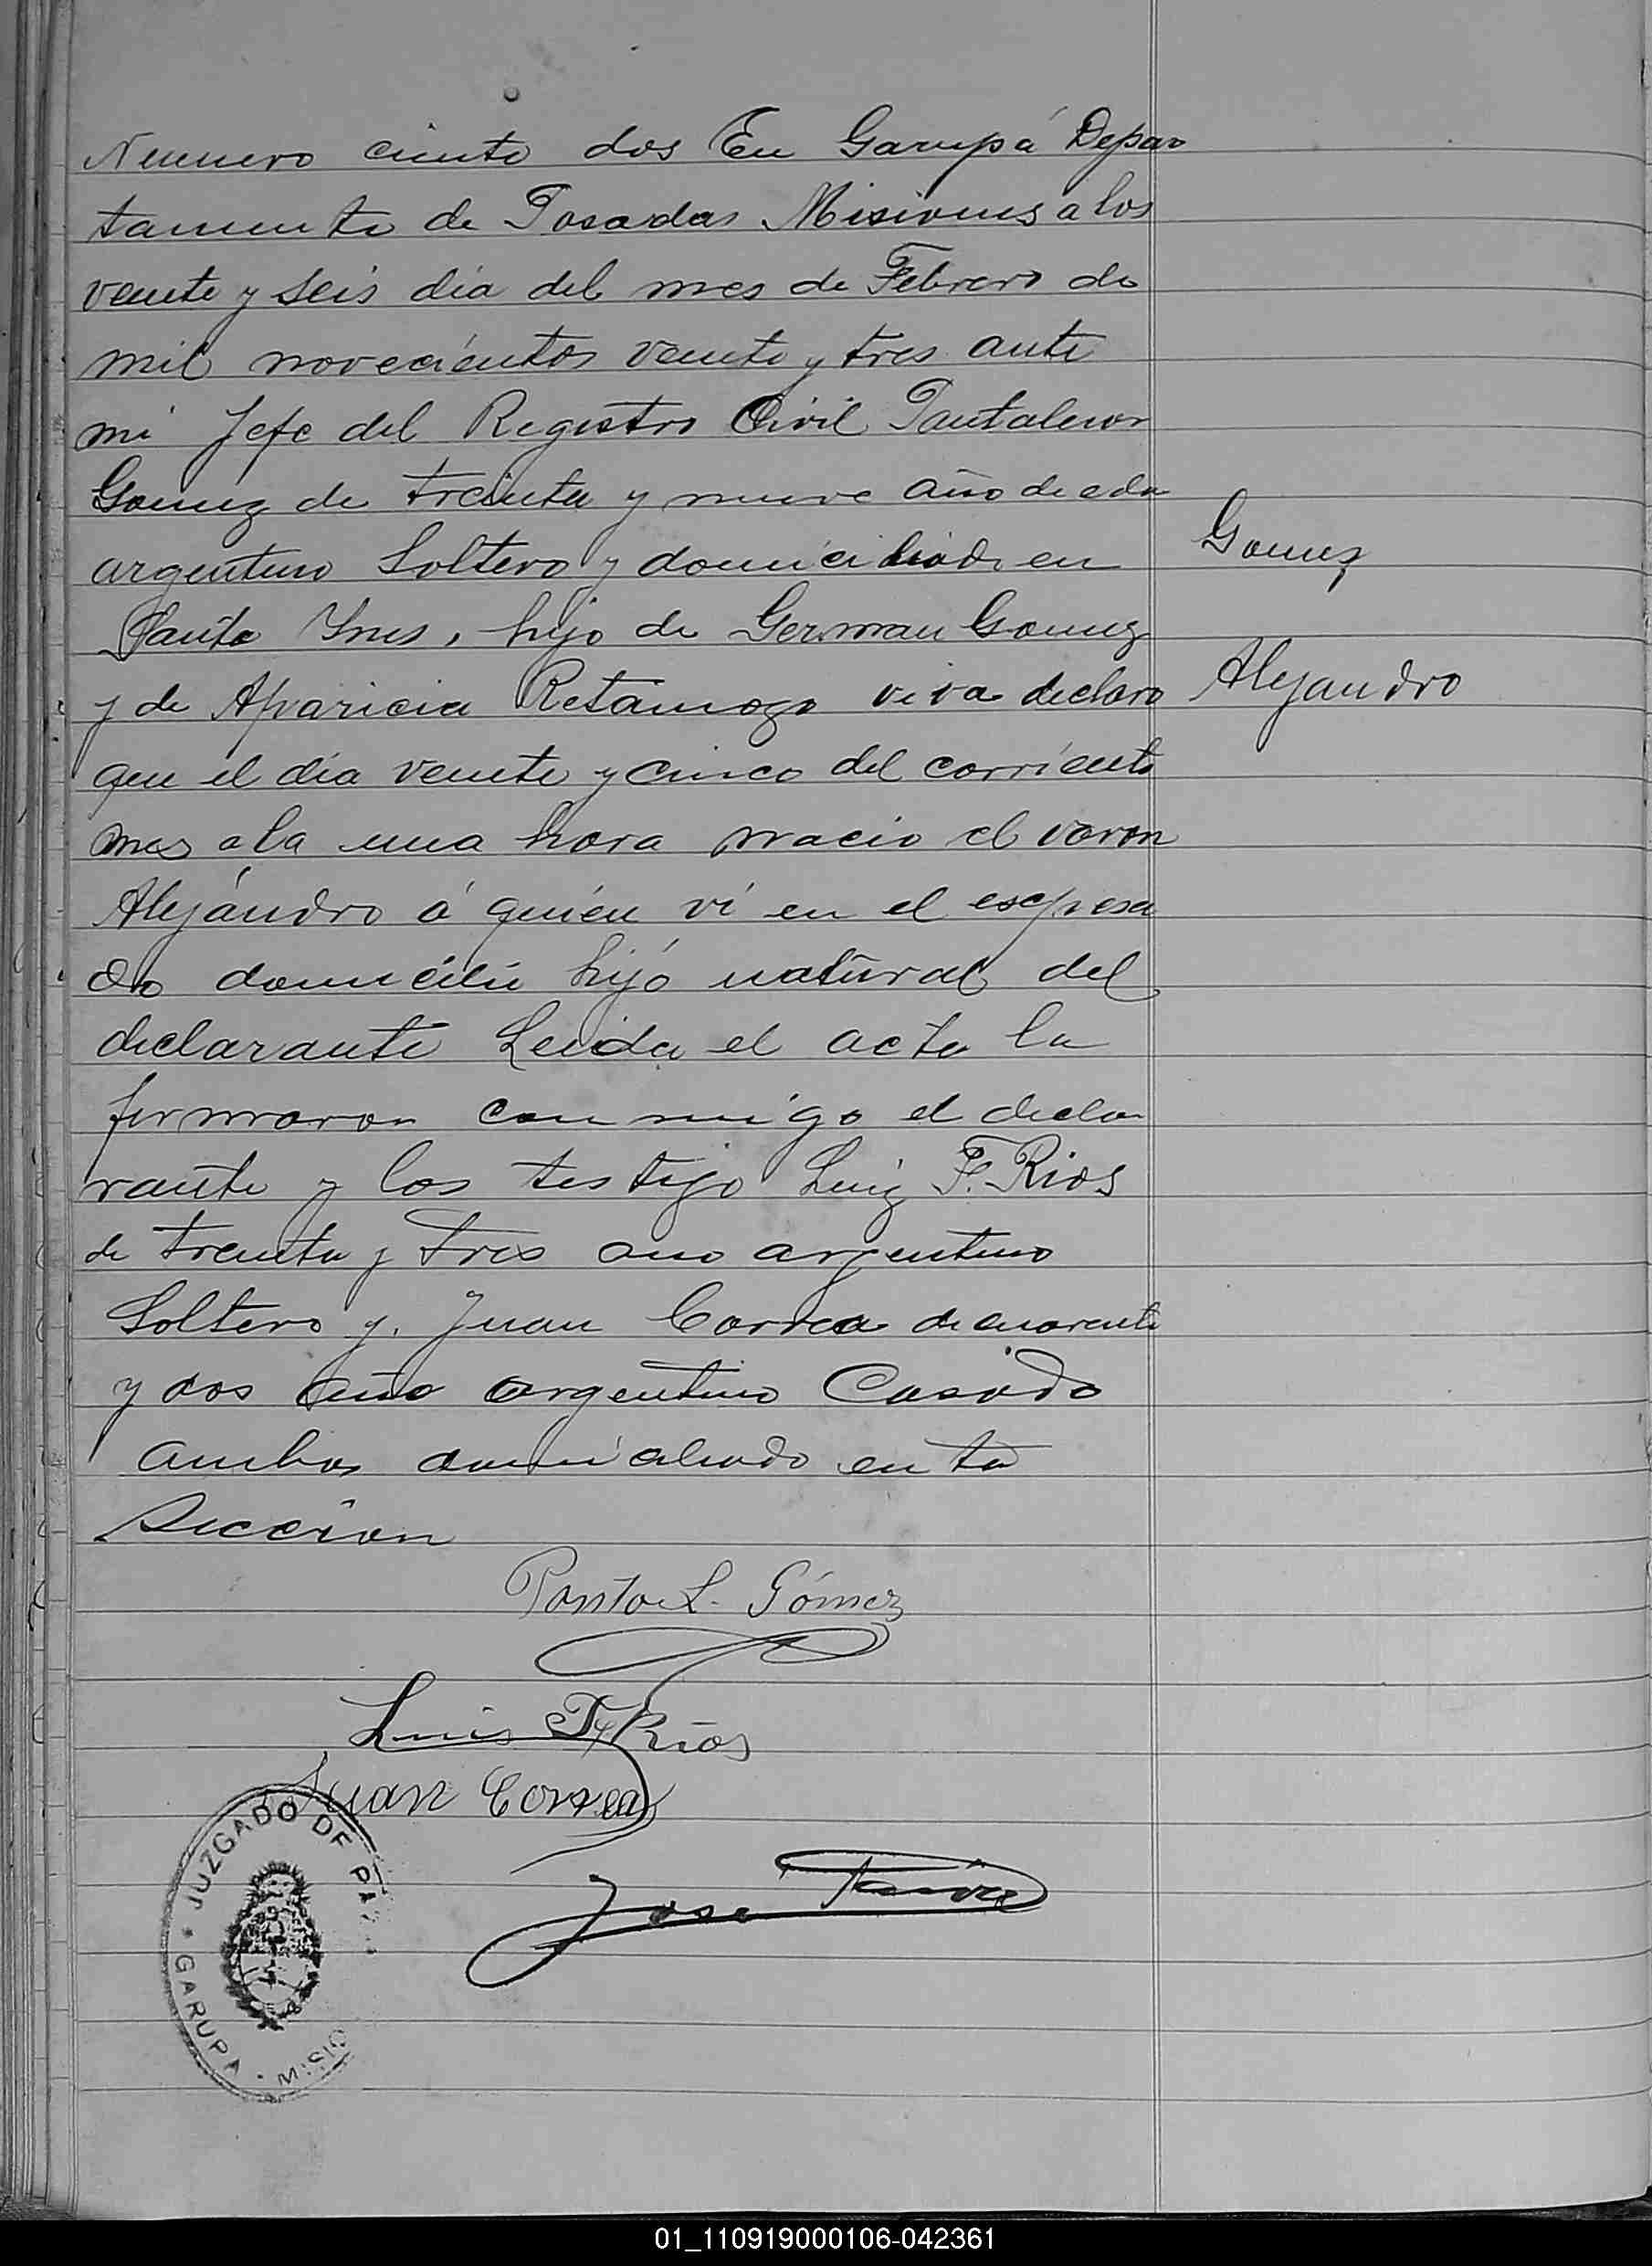 Numero ciento dos En Garupá Depar
tamento de Posadas Misiones a los
veinte y seis dia del mes de Febrero de
mil novecientos veinte y tres ante
mi Jefe del Registro Civil Pantaleon
Gomez de treinta y nueve año de eda
argentino Soltero y domiciliado en
Santa Ynes, hijo de German Gomez
y de Aparicia Retamozo viva declaro
que el dia veinte y cinco del corriente
mes a la una hora nacio el varon
Alejandro á quien vi en el espresa
do domicilio hijo natural del
declarante Leida el acta la
firmaron conmigo el decla
rante y los testigo Luiz F. Rios
de treinta y tres ano argentino
Soltero y. Juan Correa de cuarenta
y dos año argentino Casado
ambos domiciliado en la
Seccion
Gomez
Alejandro
Panta L. Gómez
Luis F. Rios
Juan Correa
Jose
JUZGADO DE PA
GARUPA · MISIO
01_110919000106-042361